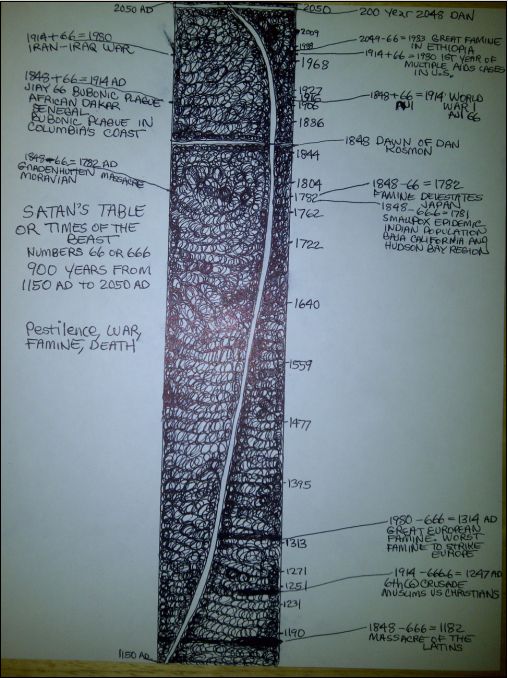 2050 AD
2050
200 YEAR 2048 DAN
1914+66=1980
IRAN-IRAQ WAR
2009
2049-66=1983 GREAT FAMINE
IN ETHIOPIA
1914+66=1980 1ST YEAR OF
MULTIPLE AIDS CASES
IN U.S.
1968
1848+66=1914 AD
JIAY 66 BUBONIC PLAGUE
AFRICAN DAKAR
SENEGAL
BUBONIC PLAGUE IN
COLUMBIA'S COAST
1927
1905
1848+66=1914 WORLD
WAR I
AJI 66
1836
1848 DAWN OF DAN
KOSMON
1844
1848-66=1782 AD
GNADENHUTTEN MASSACRE
MORAVIAN
1804
1782
1762
1848-66=1782
FAMINE DELESTATES
JAPAN
1848-66.6=1781
SMALLPOX EPIDEMIC
INDIAN POPULATION
BAJA CALIFORNIA AND
HUDSON BAY REGION
SATAN'S TABLE
OR TIMES OF THE
BEAST
NUMBERS 66 OR 666
900 YEARS FROM
1150 AD TO 2050 AD
1722
1640
Pestilence, WAR,
FAMINE, DEATH
1559
1477
1395
1313
1980-666=1314 AD
GREAT EUROPEAN
FAMINE. WORST
FAMINE TO STRIKE
EUROPE
1271
1251
1231
1914-666.6=1247 AD
6th(6) CRUSADE
MUSLIMS VS CHRISTIANS
1190
1848-666=1182
MASSACRE OF THE
LATINS
1150 AD